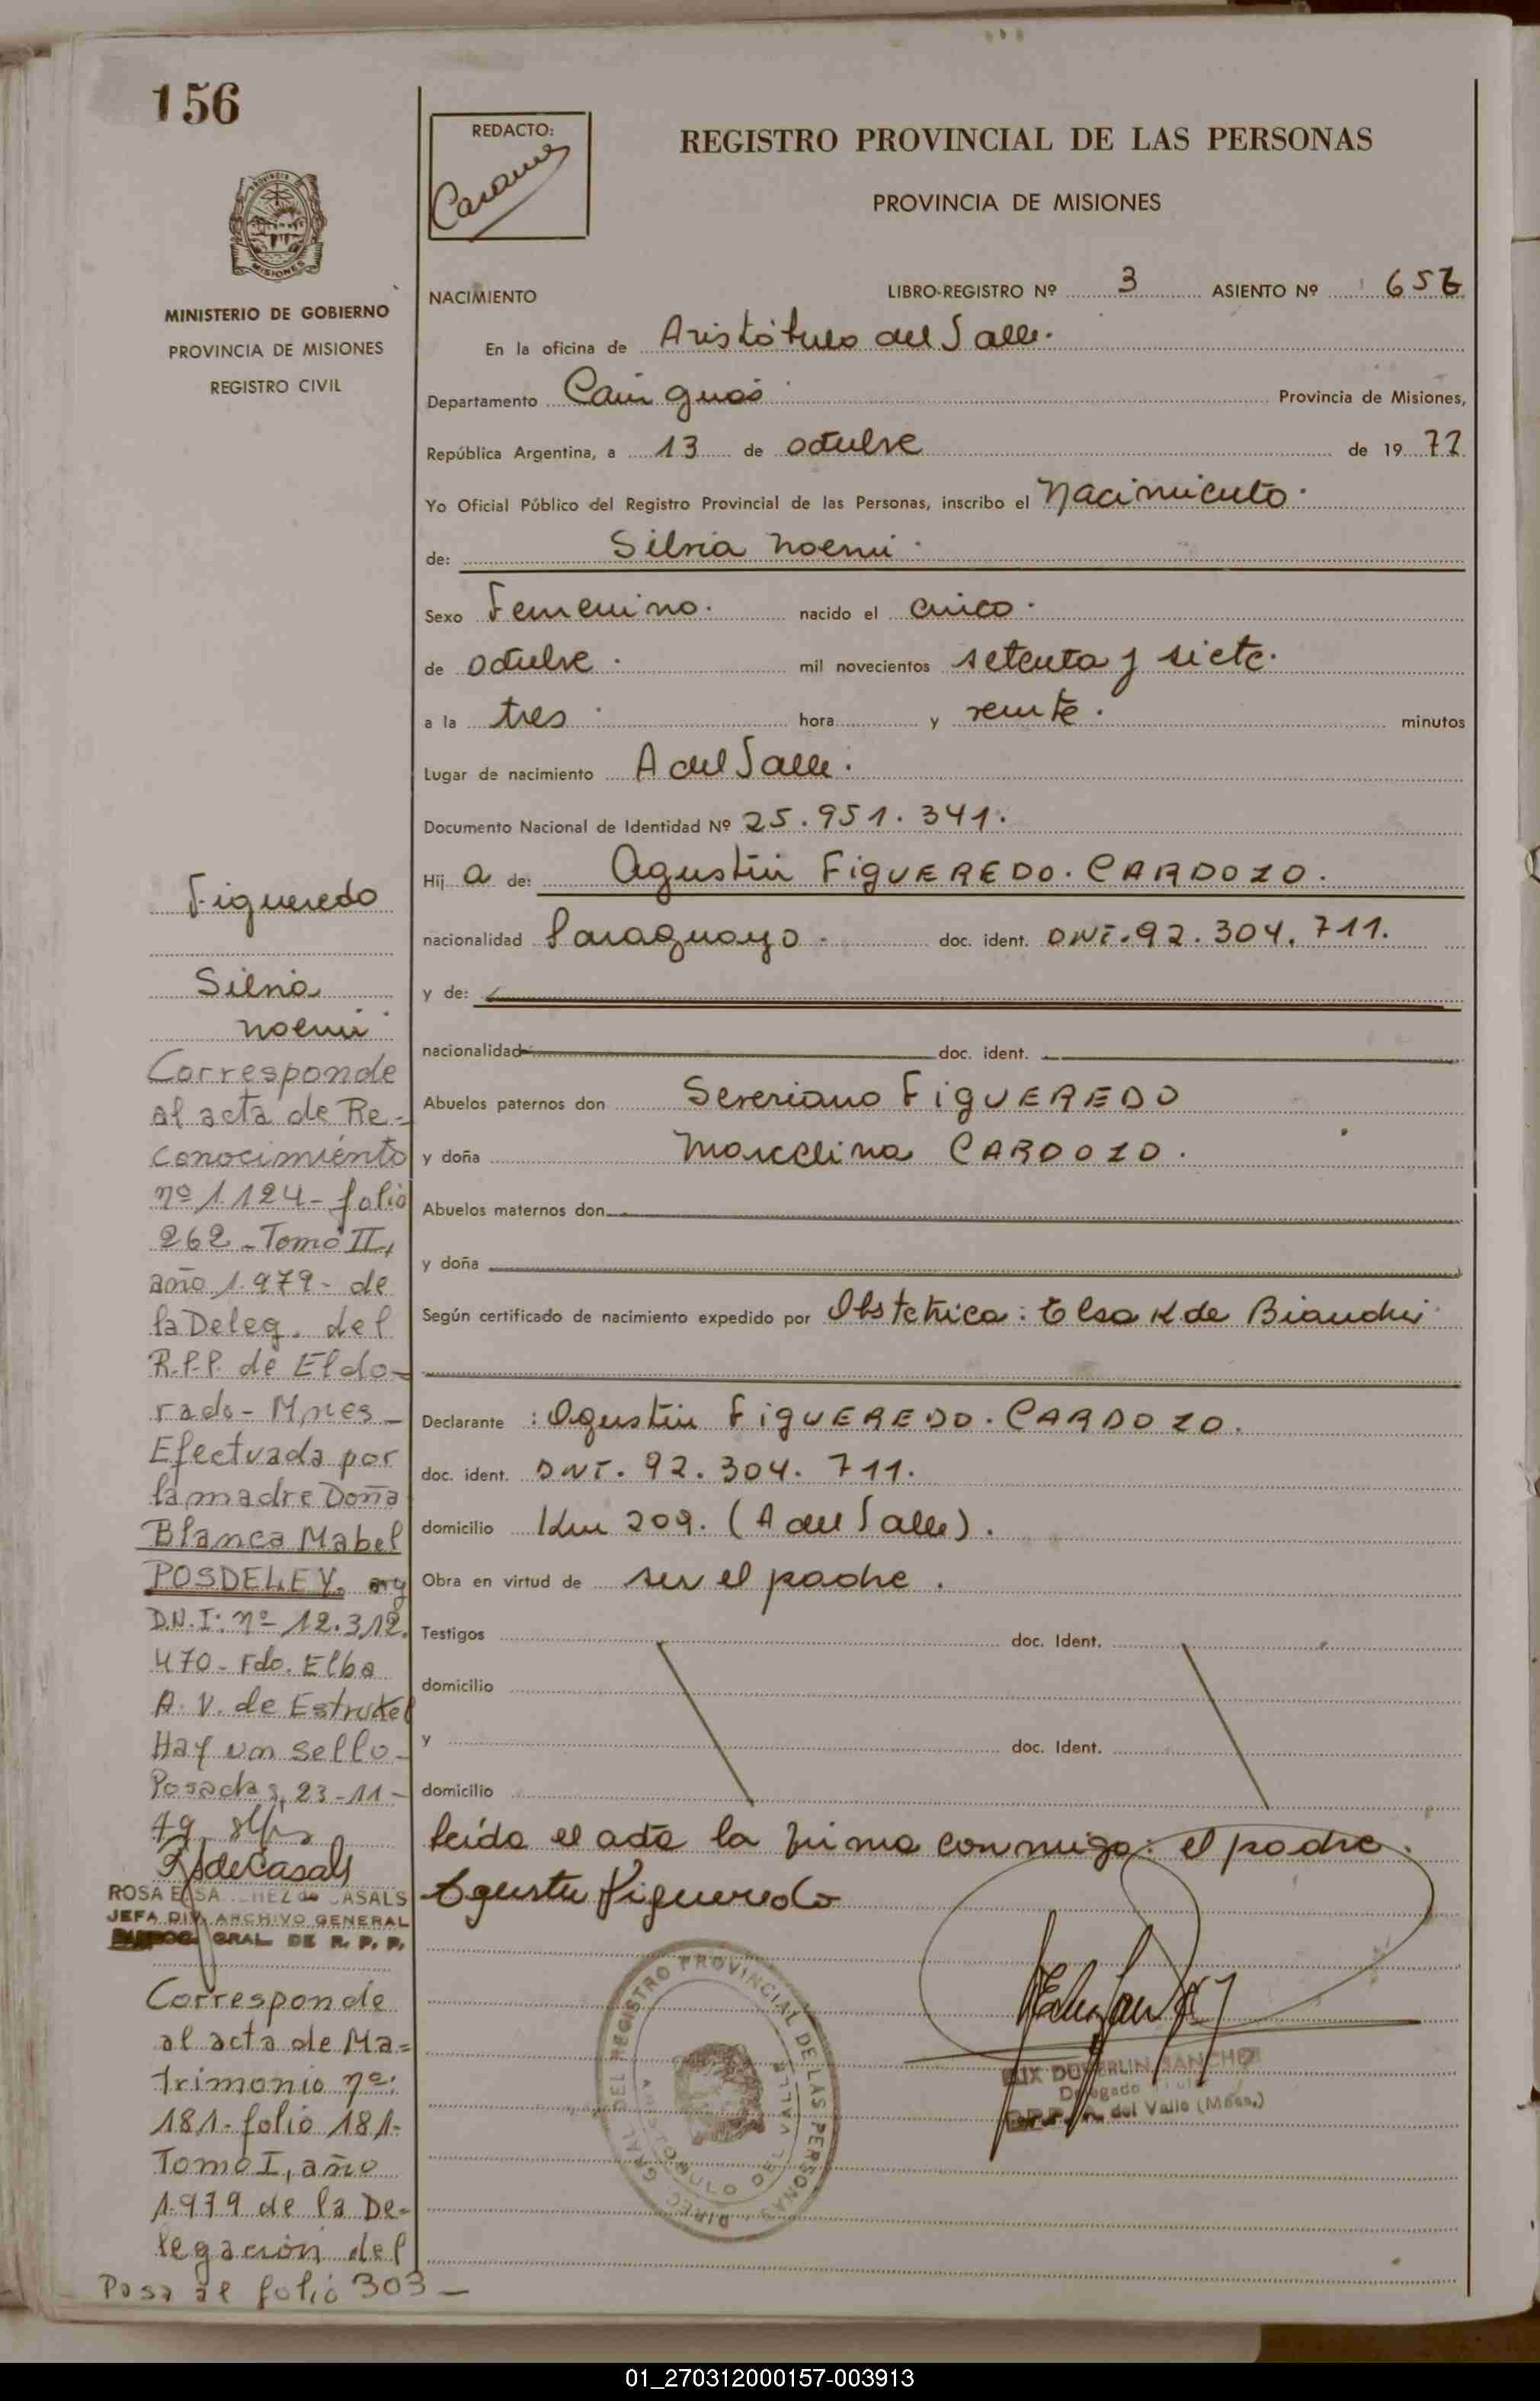 156
MINISTERIO DE GOBIERNO
PROVINCIA DE MISIONES
REGISTRO CIVIL
REDACTO:
REGISTRO PROVINCIAL DE LAS PERSONAS
PROVINCIA DE MISIONES
NACIMIENTO LIBRO-REGISTRO Nº 3 ASIENTO Nº 656
En la oficina de Aristóbulo del Valle.
Departamento Cainguás Provincia de Misiones,
República Argentina, a 13 de octubre de 19 77
Yo Oficial Público del Registro Provincial de las Personas, inscribo el Nacimiento.
de: Silvia Noemi.
Sexo Femenino. nacido el cinco.
de octubre. mil novecientos setenta y siete.
a la tres hora y veinte. minutos
Lugar de nacimiento A del Valle.
Documento Nacional de Identidad Nº 25.951.341.
Hij a de: Agustin FigUEREDO. CARDOZO.
nacionalidad Paraguayo. doc. ident. DNI. 92.304.711.
y de:
nacionalidad doc. ident.
Abuelos paternos don Severiano FigUEREDO
y doña Marcelina CARDOZO.
Abuelos maternos don
y doña
Según certificado de nacimiento expedido por Obstetrica: Elsa K de Bianchi
Declarante : Agustin FigUEREDO. CARDOZO.
doc. ident. DNI. 92.304.711.
domicilio Km 209. (A del Valle).
Obra en virtud de ser el padre.
Testigos doc. Ident.
domicilio
y doc. Ident.
domicilio
leída el acta la firma conmigo: el padre.
Agustin Figueredo
DIREC. GRAL. DEL REGISTRO PROVINCIAL DE LAS PERSONAS
ARISTOBULO DEL VALLE
SANCHEZ
Delegado Titular
A. del Valle (Mnes.)
Figueredo
Silvia
Noemi
Corresponde
al acta de Re-
conocimiénto
nº 1.124- folio
262-Tomo II,
año 1.979- de
la Deleg. del
R.P.P. de Eldo-
rado- Mnes-
Efectuada por
la madre Doña
Blanca Mabel
POSDELEY. arg
D.N.I: nº 12.312.
470- Fdo. Elba
A. V. de
Hay un sello-
Posadas, 23-11-
79
RSdeCasals
ROSA E. SANCHEZ de CASALS
JEFA DIV. ARCHIVO GENERAL
GRAL DE R. P. P.
Corresponde
al acta de Ma-
trimonio nº:
181- folio 181-
Tomo I, año
1.979 de la De-
legación del
Pasa al folio 303-
01_270312000157-003913